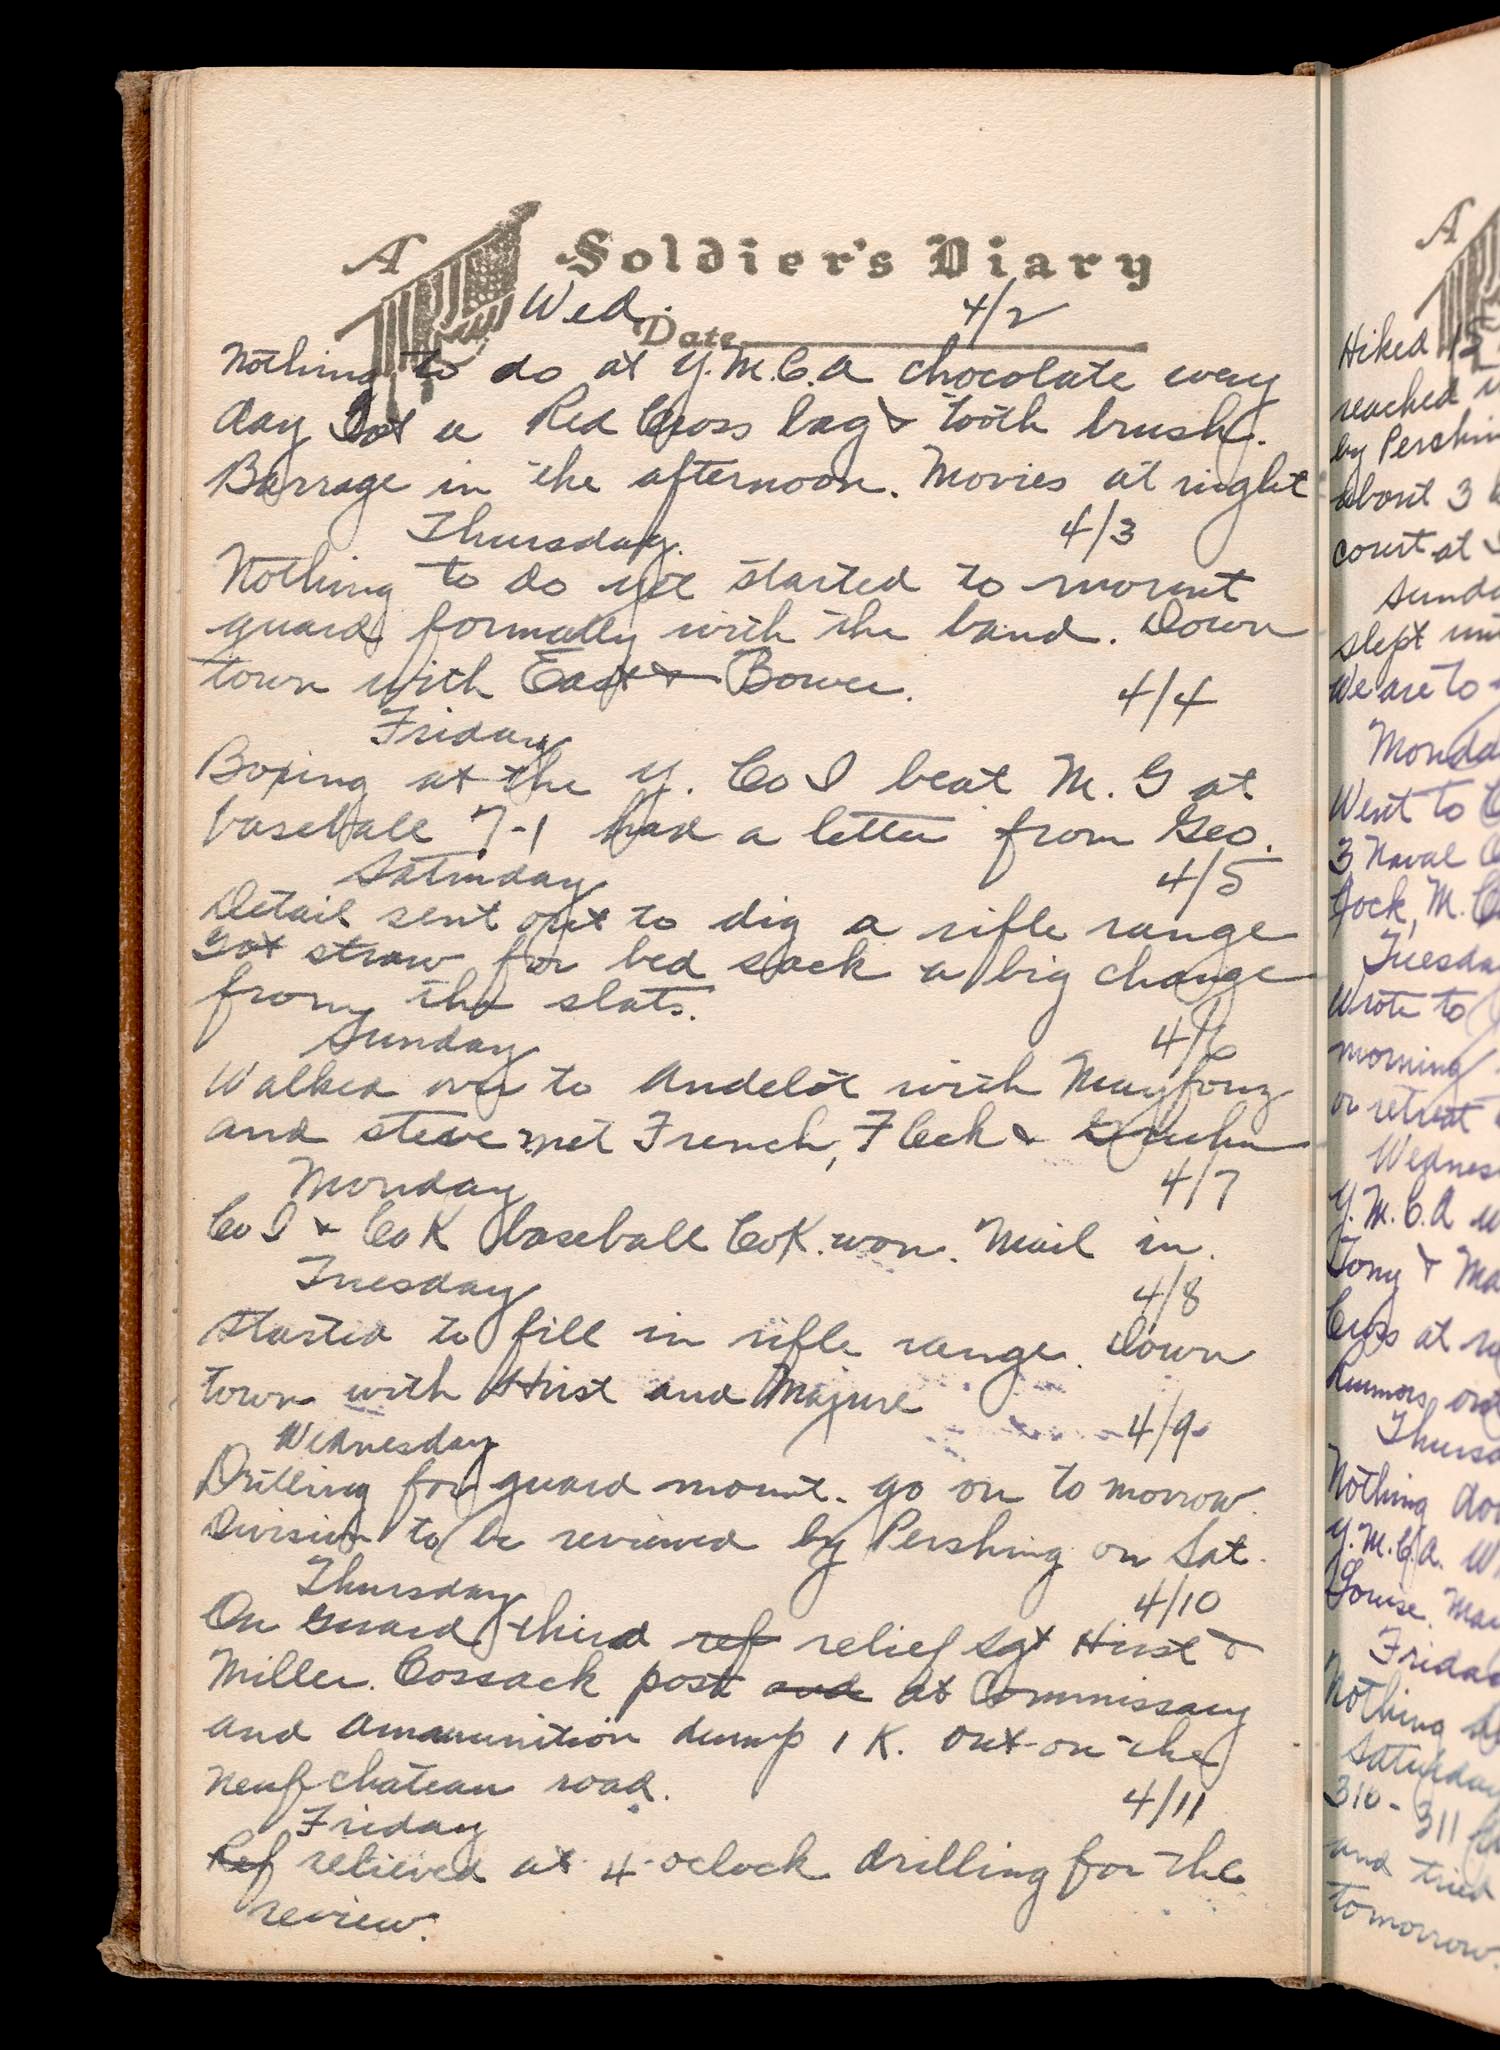 A Soldier's Diary
Wed. Date 4/2
Nothing to do at Y.M.C.A chocolate every
day Got a Red Cross bag & tooth brush.
Barrage in the afternoon. Movies at night
Thursday. 4/3
Nothing to do yet started to mount
guard formally with the band. Down
town with East & Bower.
4/4
Friday
Boxing at the Y. Co I beat M. G at
baseball 7-1 had a letter from Geo.
Saturday 4/5
Detail sent out to dig a rifle range
Got straw for bed sack a big change
from the slats.
Sunday 4/6
Walked over to Andelot with
and Steve met French, Fleck &
Monday 4/7
Co I & Co K baseball Co K. won. Mail in.
Tuesday 4/8
Started to fill in rifle range. Down
town with Hirst and Majure
Wednesday 4/9
Drilling for guard mount. go on to morrow.
Division to be reviewed by Pershing on Sat.
Thursday 4/10
On guard third ref relief Sgt Hirst &
Miller. Cossack post and at Commissary
and ammunition dump 1 K. out on the
Neufchateau road.
4/11
Friday
Ref relieved at 4 oclock drilling for the
review.
A
Hiked 15
reached
by Pershin
about 3
court at
Sunda
slept unt
We are to
Monda
Went to
3 Naval
Jock, M.
Tuesda
Wrote to
morning
or retreat
Wednes
Y.M.C.A
Tony & Ma
Cross at
Rumors out
Thursd
Nothing do
Y.M.C.A. W
Louise. Ma
Friday
Nothing
Saturday
310-311
and tried
tomorrow.